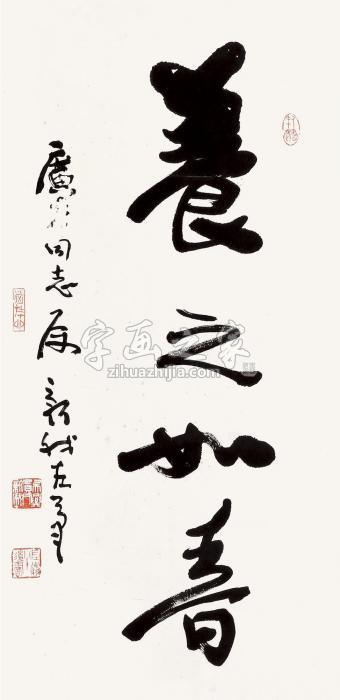 養之如春
廣 同志属 新我左筆
字画之家
zihuazhijia.com